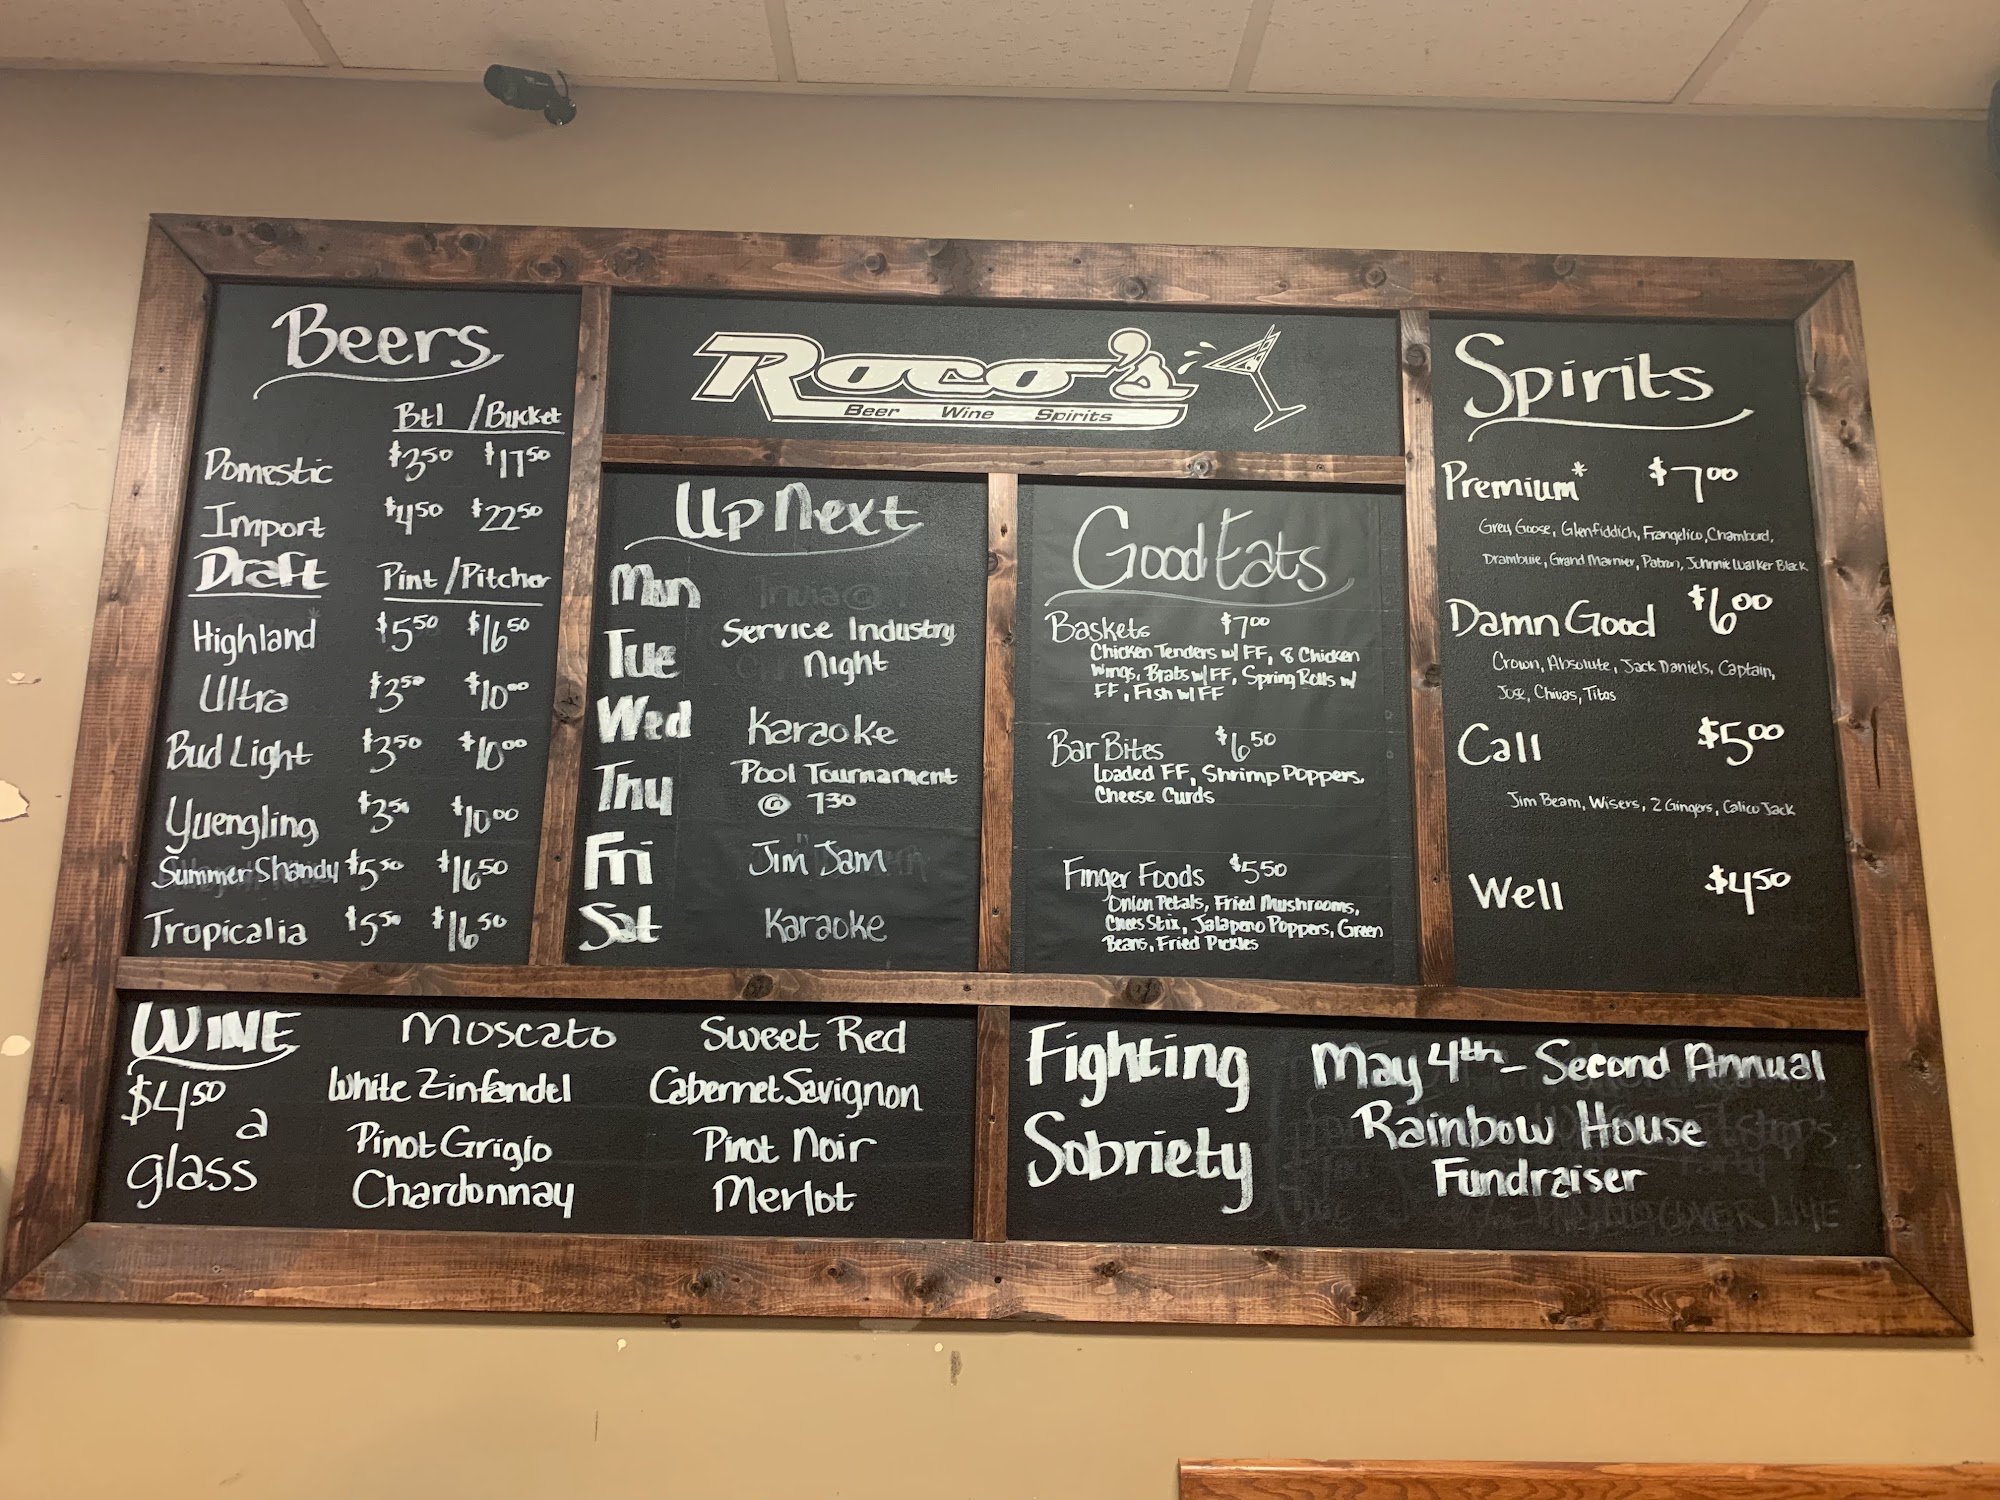 Beers
Btl / Bucket
Domestic $3.50 $17.50
Import $4.50 $22.50
Draft Pint / Pitcher
Highland* $5.50 $16.50
Ultra $3.50 $10.00
Bud Light $3.50 $10.00
Yuengling $3.50 $10.00
Summer Shandy $5.50 $16.50
Tropicalia $5.50 $16.50
Roco's
Beer Wine Spirits
Up Next
Mon Trivia @
Tue Service Industry
Night
Wed Karaoke
Thu Pool Tournament
@ 730
Fri Jim Jam
Sat Karaoke
Good Eats
Baskets $7.00
Chicken Tenders w/ FF, 8 Chicken
Wings, Brats w/ FF, Spring Rolls w/
FF, Fish w/ FF
Bar Bites $6.50
Loaded FF, Shrimp Poppers,
Cheese Curds
Finger Foods $5.50
Onion Petals, Fried Mushrooms,
Chees Stix, Jalapeno Poppers, Green
Beans, Fried Pickles
Spirits
Premium* $7.00
Grey Goose, Glenfiddich, Frangelico, Chambord,
Drambuie, Grand Marnier, Patron, Johnnie Walker Black
Damn Good $6.00
Crown, Absolute, Jack Daniels, Captain,
Jose, Chivas, Titos
Call $5.00
Jim Beam, Wisers, 2 Gingers, Calico Jack
Well $4.50
WINE
$4.50
a
glass
Moscato Sweet Red
White Zinfandel Cabernet Savignon
Pinot Grigio Pinot Noir
Chardonnay Merlot
Fighting
Sobriety
May 4th - Second Annual
Rainbow House
Fundraiser